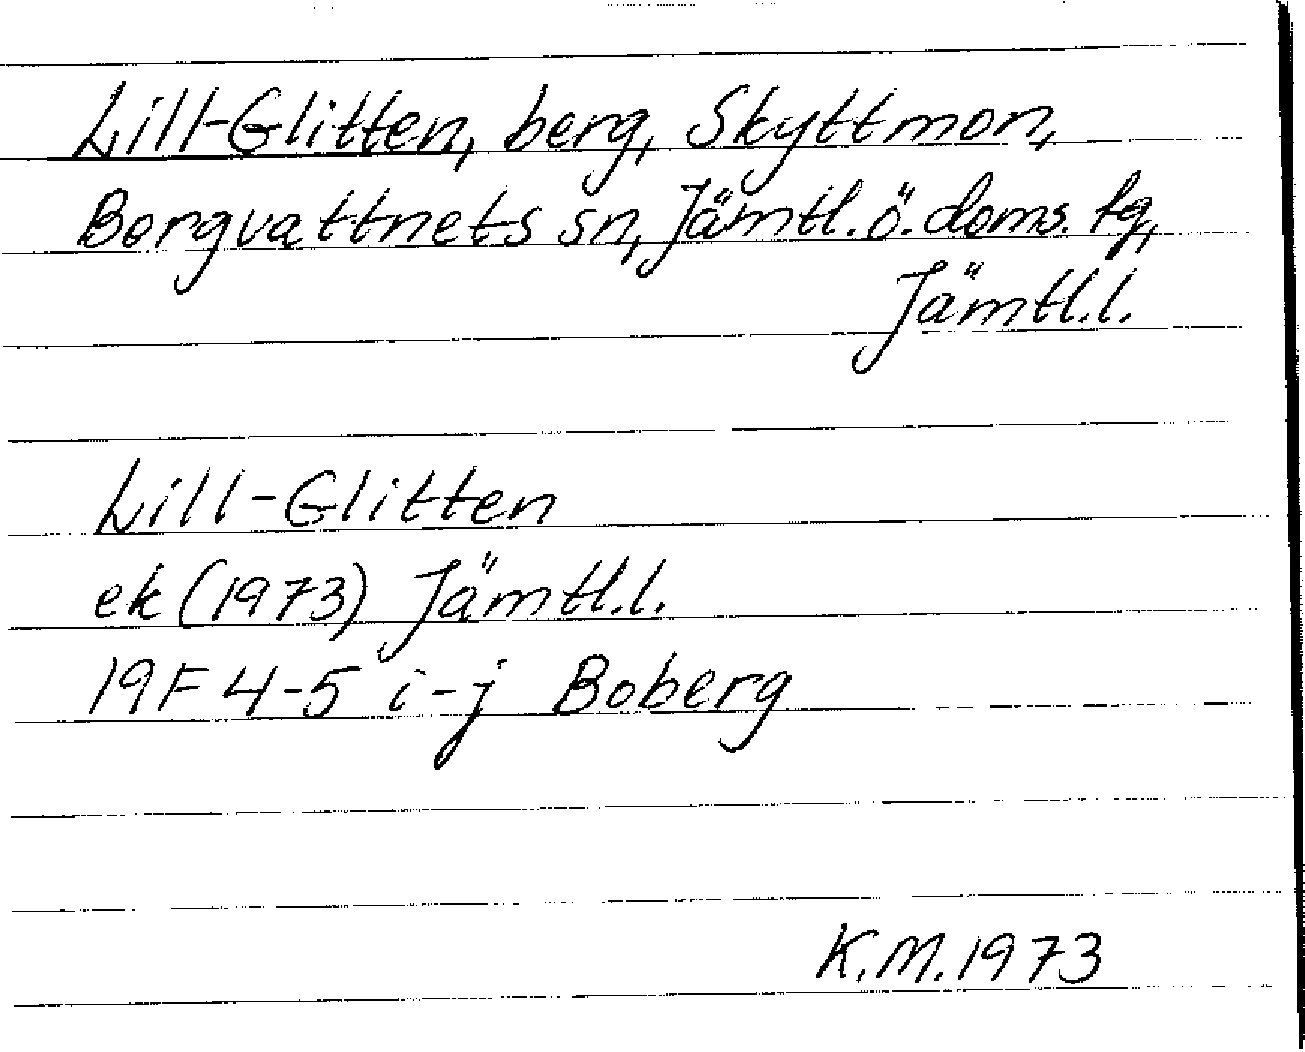 Lill-Glitten, berg, Skyttmon,
Borgvattnets sn, Jämtl. ö. doms. tg,
Jämtl.l.
Lill-Glitten
ek (1973) Jämtl.l.
19F 4-5 i-j Boberg
K.M. 1973